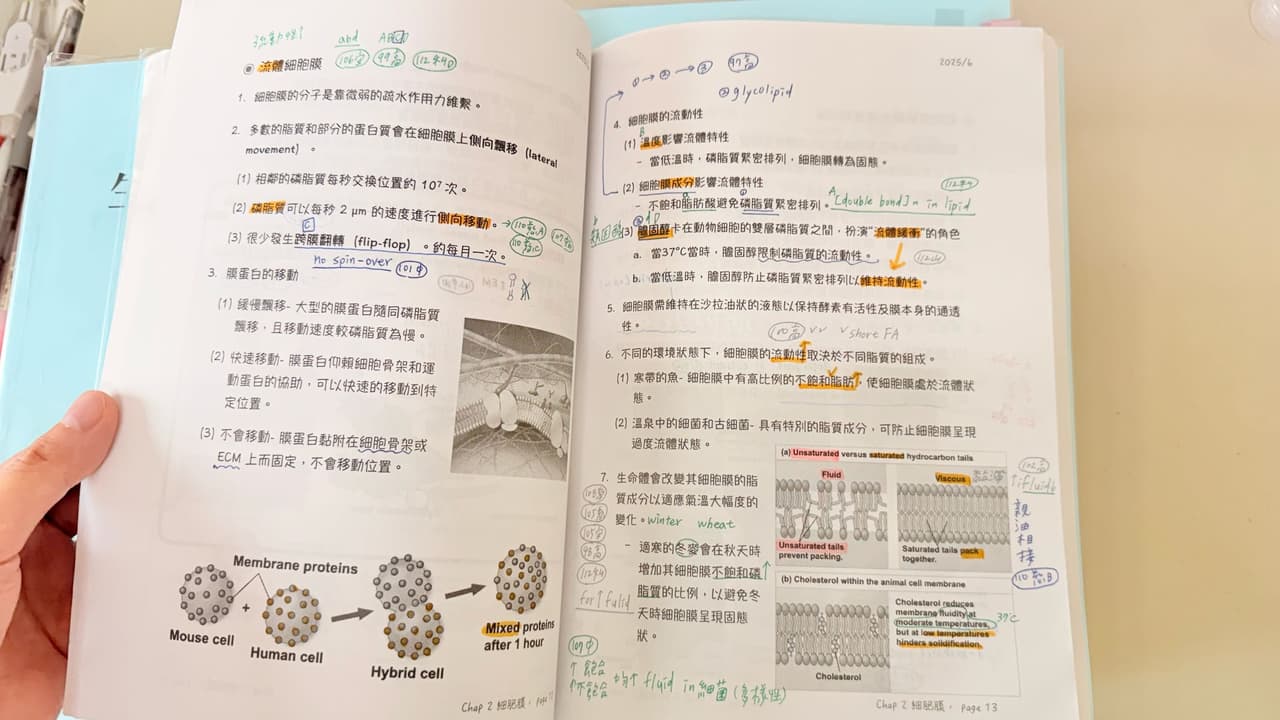 流動性↑ abd ABCD
106 99高 112
流體細胞膜
1. 細胞膜的分子是靠微弱的疏水作用力維繫。
2. 多數的脂質和部分的蛋白質會在細胞膜上側向飄移 (lateral
movement) 。
(1) 相鄰的磷脂質每秒交換位置約 10⁷ 次。
(2) 磷脂質可以每秒 2 μm 的速度進行側向移動。
(3) 很少發生跨膜翻轉 (flip-flop) 。約每月一次。
no spin-over 101中
3. 膜蛋白的移動
(1) 緩慢飄移- 大型的膜蛋白隨同磷脂質
飄移,且移動速度較磷脂質為慢。
(2) 快速移動- 膜蛋白仰賴細胞骨架和運
動蛋白的協助,可以快速的移動到特
定位置。
(3) 不會移動- 膜蛋白黏附在細胞骨架或
ECM 上而固定,不會移動位置。
Membrane proteins
+
Mouse cell
Human cell
Hybrid cell
Mixed proteins
after 1 hour
Chap 2 細胞膜, page 1
2025/6
①→②→③ 97高
③glycolipid
4. 細胞膜的流動性
(1) 溫度影響流體特性
- 當低溫時,磷脂質緊密排列,細胞膜轉為固態。
(2) 細胞膜成分影響流體特性
- 不飽和脂肪酸避免磷脂質緊密排列。[double bond] in lipid
(3) 膽固醇卡在動物細胞的雙層磷脂質之間,扮演"流體緩衝"的角色
a. 當37°C當時,膽固醇限制磷脂質的流動性。
b. 當低溫時,膽固醇防止磷脂質緊密排列以維持流動性。
5. 細胞膜需維持在沙拉油狀的液態以保持酵素有活性及膜本身的通透
性。
100高 ✓✓ ✓short FA
6. 不同的環境狀態下,細胞膜的流動性取決於不同脂質的組成。
(1) 寒帶的魚- 細胞膜中有高比例的不飽和脂肪,使細胞膜處於流體狀
態。
(2) 溫泉中的細菌和古細菌- 具有特別的脂質成分,可防止細胞膜呈現
過度流體狀態。
7. 生命體會改變其細胞膜的脂
質成分以適應氣溫大幅度的
變化。winter wheat
- 適寒的冬麥會在秋天時
增加其細胞膜不飽和磷↑
脂質的比例,以避免冬
天時細胞膜呈現固態
狀。
(a) Unsaturated versus saturated hydrocarbon tails
Fluid
Viscous
Unsaturated tails
prevent packing.
Saturated tails pack
together.
(b) Cholesterol within the animal cell membrane
Cholesterol reduces
membrane fluidity at
moderate temperatures, 37°C
but at low temperatures
hinders solidification.
Cholesterol
102高
親
油
相
接
for↑fulid
109中
↑飽合
↑不飽合 均↑ fluid in 細菌 (多樣性)
Chap 2 細胞膜, page 13